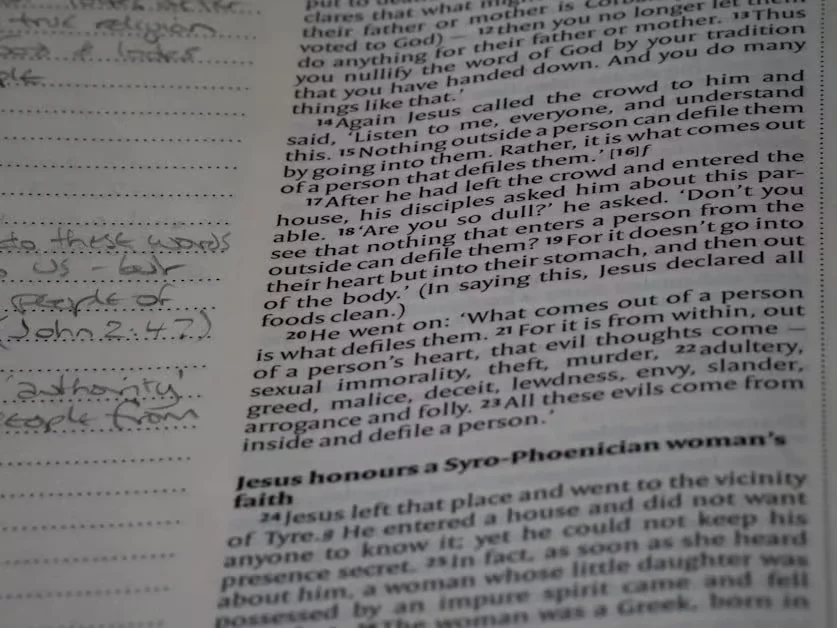 true religion
ple
to these words
us - but
people of
(John 2:4?)
'authority'
people from
put to
clares that what
their father or mother is Corban
voted to God) – 12 then you no longer let them
do anything for their father or mother. 13 Thus
you nullify the word of God by your tradition
that you have handed down. And you do many
things like that.'
14 Again Jesus called the crowd to him and
said, 'Listen to me, everyone, and understand
this. 15 Nothing outside a person can defile them
by going into them. Rather, it is what comes out
of a person that defiles them.' [16] f
17 After he had left the crowd and entered the
house, his disciples asked him about this par-
able. 18 'Are you so dull?' he asked. 'Don't you
see that nothing that enters a person from the
outside can defile them? 19 For it doesn't go into
their heart but into their stomach, and then out
of the body.' (In saying this, Jesus declared all
foods clean.)
20 He went on: 'What comes out of a person
is what defiles them. 21 For it is from within, out
of a person's heart, that evil thoughts come –
sexual immorality, theft, murder, 22 adultery,
greed, malice, deceit, lewdness, envy, slander,
arrogance and folly. 23 All these evils come from
inside and defile a person.'
Jesus honours a Syro-Phoenician woman's
faith
24 Jesus left that place and went to the vicinity
of Tyre. g He entered a house and did not want
anyone to know it; yet he could not keep his
presence secret. 25 In fact, as soon as she heard
about him, a woman whose little daughter was
possessed by an impure spirit came and fell
The woman was a Greek, born in